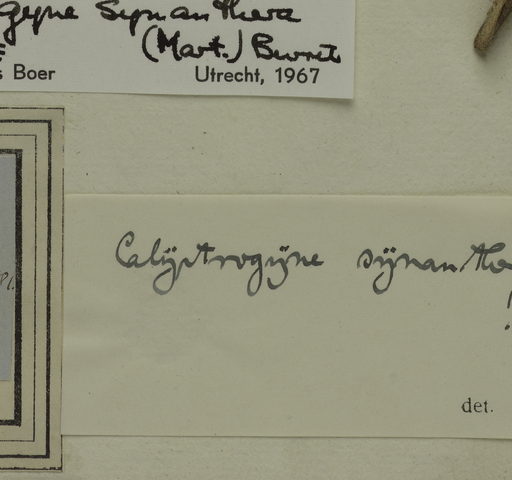 gyne Synanthera
(Mart.) Burret
s Boer Utrecht, 1967
Calÿptrogÿne sÿnanthe
!
det.